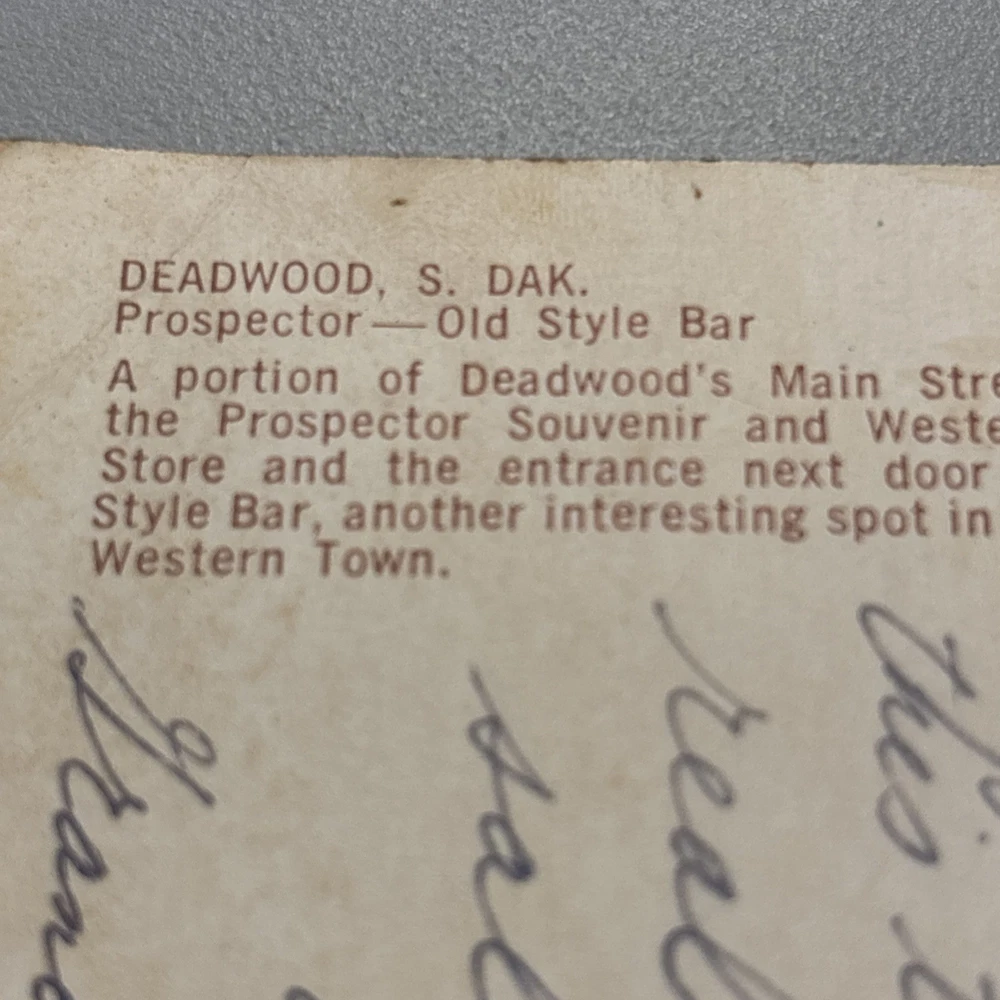 DEADWOOD, S. DAK.
Prospector — Old Style Bar
A portion of Deadwood's Main
the Prospector Souvenir and
Store and the entrance next door
Style Bar, another interesting spot in
Western Town.
this
real